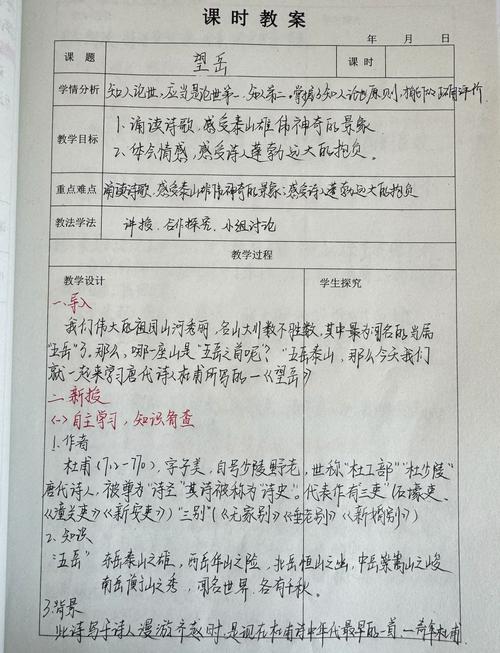 课时教案
年 月 日
课题 望岳 课时
学情分析 知人论世,应当是论世第一,知人第二。掌握了知人论世原则,有助于正确评价
教学目标 1、诵读诗歌,感受泰山雄伟神奇的景象
2、体会情感,感受诗人蓬勃远大的抱负。
重点难点 诵读诗歌,感受泰山雄伟神奇的景象;感受诗人蓬勃远大的抱负
教法学法 讲授、合作探究、小组讨论
教学过程
教学设计 学生探究
一、导入
我们伟大的祖国山河秀丽,名山大川数不胜数,其中最为闻名的当属
"五岳"了,那么,哪一座山是"五岳之首呢?"五岳泰山,那么今天我们
就一起来学习唐代诗人杜甫所写的一《望岳》
二、新授
(一)自主学习,知识备查
1、作者
杜甫(712-770),字子美,自号少陵野老,世称"杜工部""杜少陵"
唐代诗人,被尊为"诗圣"其诗被称为"诗史"。代表作有"三吏"《石壕吏》
《潼关吏》《新安吏》)"三别"(《无家别》《垂老别》《新婚别》)
2、知识
"五岳" 东岳泰山之雄,西岳华山之险,北岳恒山之幽,中岳嵩山之峻
南岳衡山之秀,闻名世界,各有千秋。
3、背景
此诗写于诗人漫游齐赵时,是现存杜甫诗中年代最早的一首,一青年杜甫